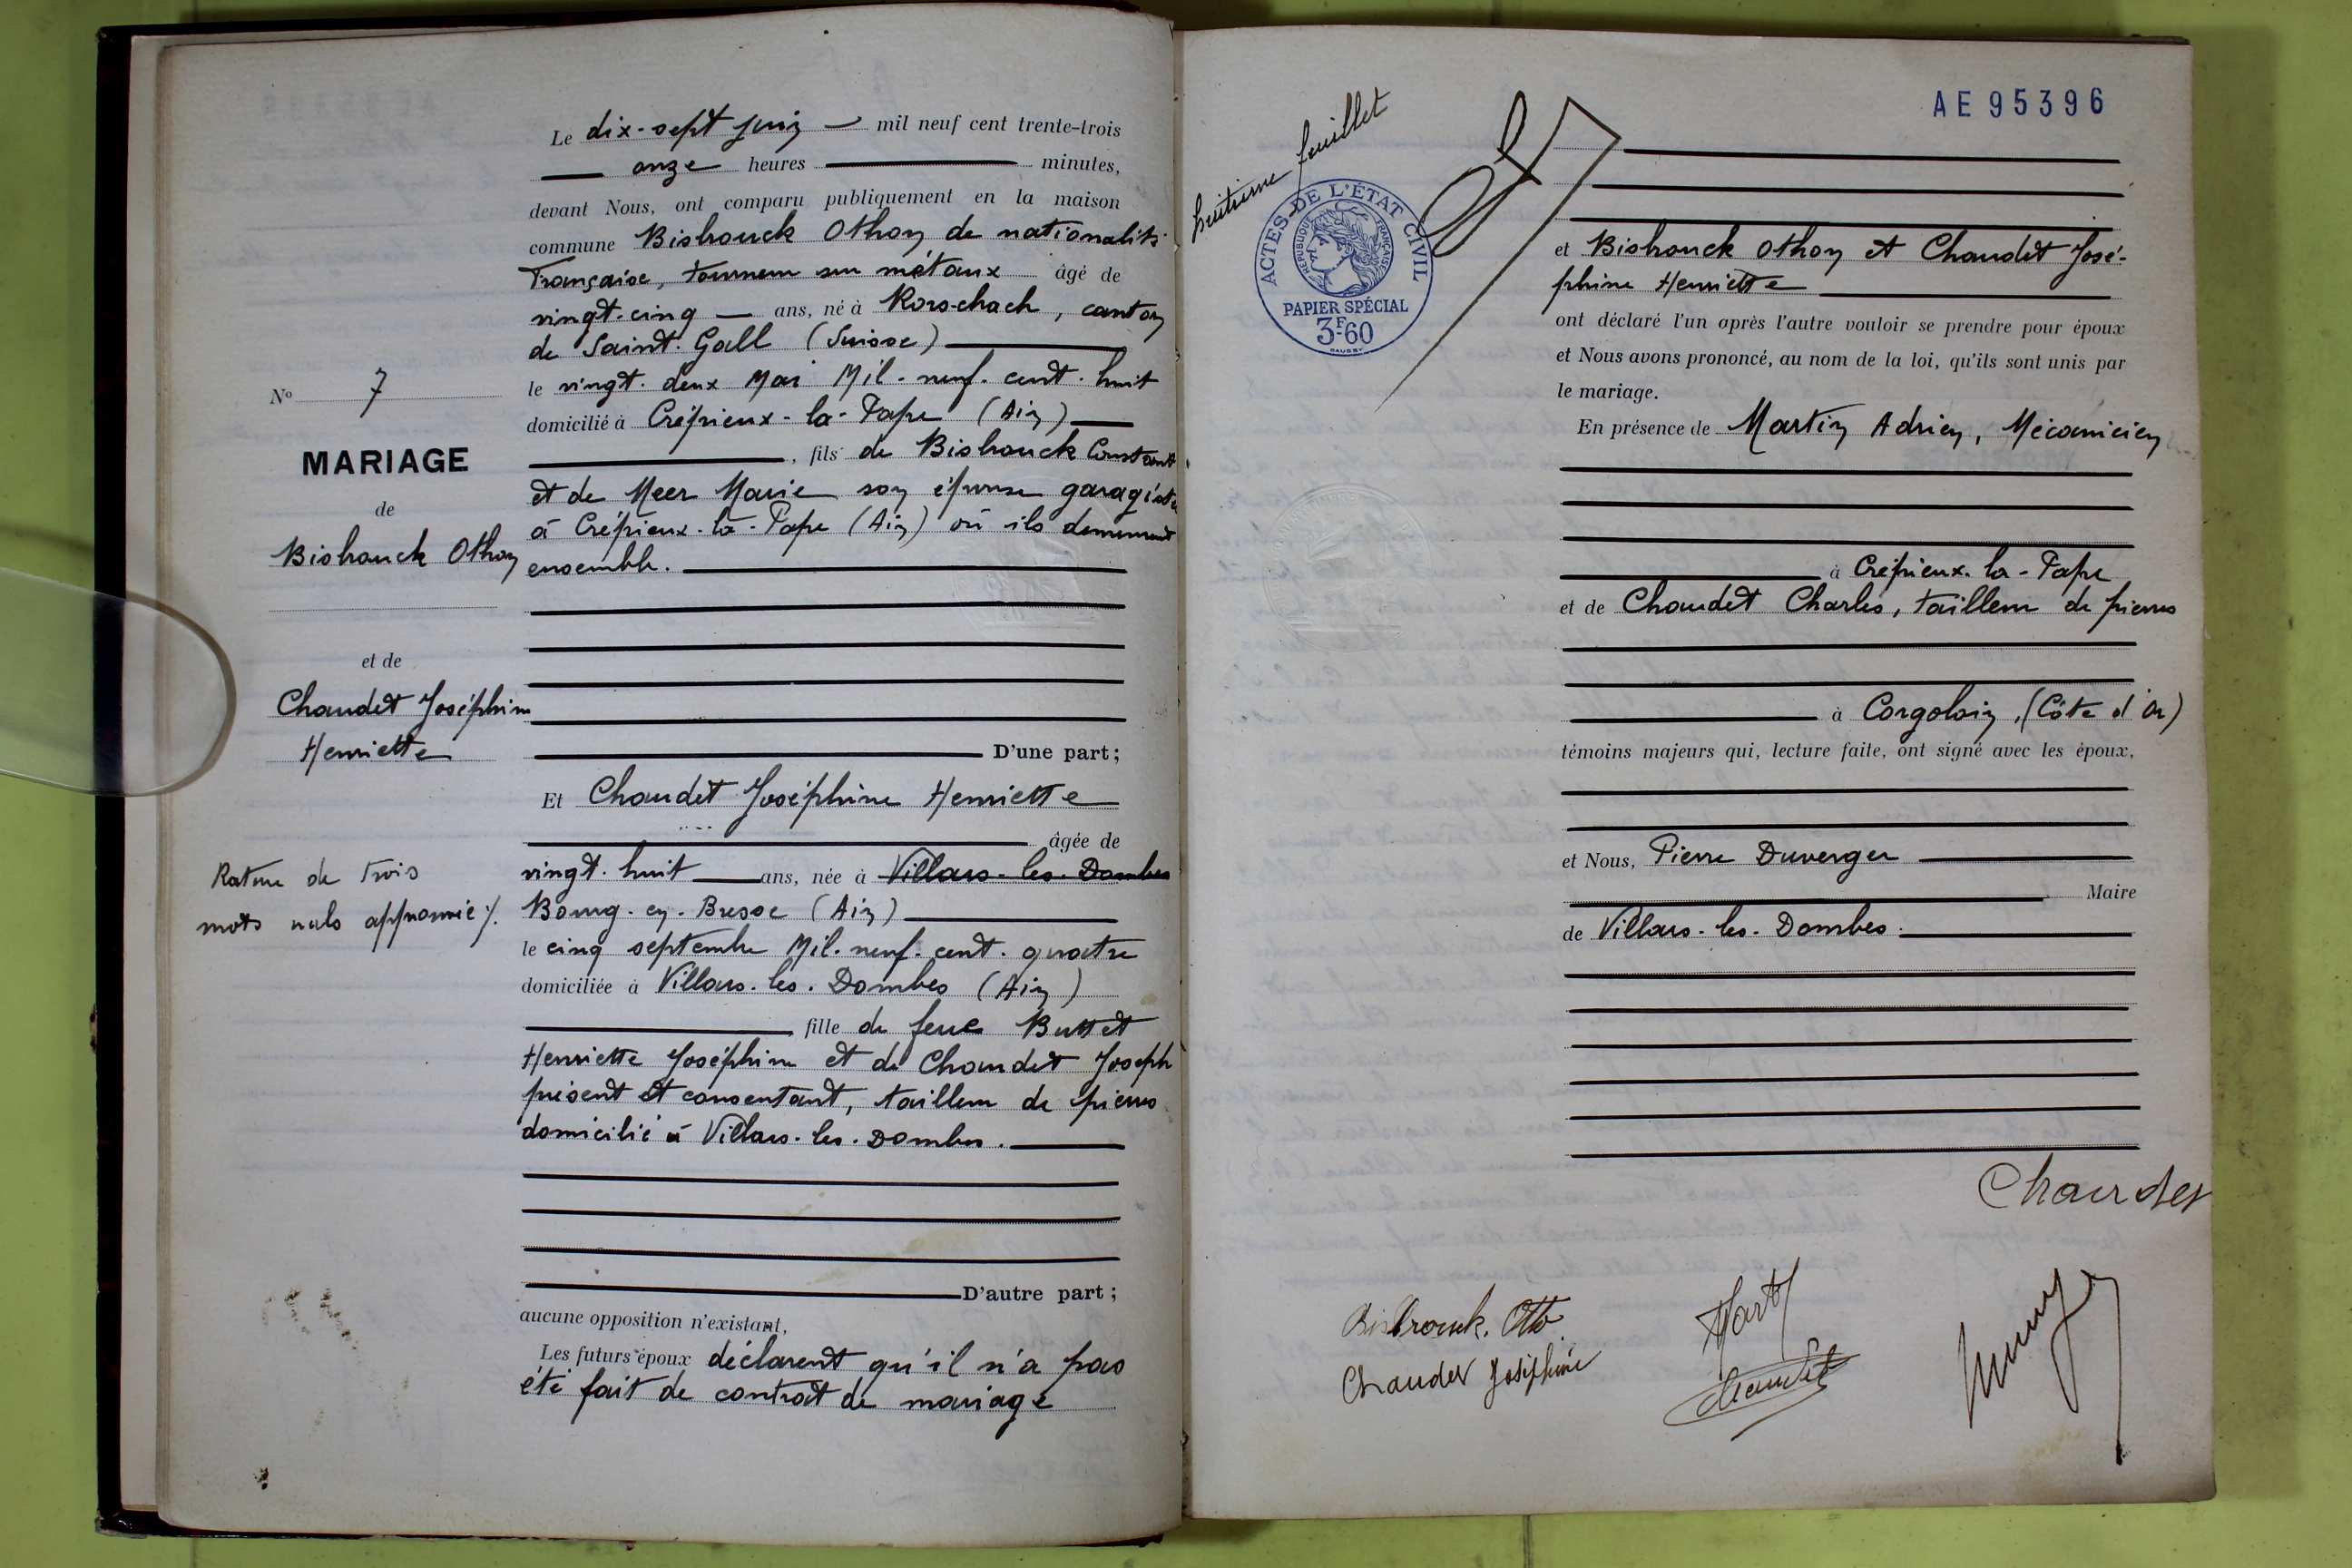 Le dix-sept juin mil neuf cent trente-trois
onze heures minutes,
devant Nous, ont comparu publiquement en la maison
commune Bisbrouck Othon de nationalité
Française, tourneur sur métaux âgé de
vingt-cinq ans, né à Rorschach, canton
de Saint-Gall (Suisse)
le vingt-deux Mai Mil-neuf-cent-huit
domicilié à Crépieux-la-Pape (Ain)
, fils de Bisbrouck Constant
et de Meer Marie son épouse garagiste
à Crépieux-la-Pape (Ain) où ils demeurent
ensemble.
D'une part;
Et Chaudet Joséphine Henriette
âgée de
vingt-huit ans, née à Villars-les-Dombes
Bourg-en-Bresse (Ain)
le cinq septembre Mil-neuf-cent-quatre
domiciliée à Villars-les-Dombes (Ain)
fille de feue Buttet
Henriette Joséphine et de Chaudet Joseph
présent et consentant, tailleur de pierres
domicilié à Villars-les-Dombes.
D'autre part;
aucune opposition n'existant,
Les futurs époux déclarent qu'il n'a pas
été fait de contrat de mariage
No 7
MARIAGE
de
Bisbrouck Othon
et de
Chaudet Joséphine
Henriette
Rature de trois
mots nuls approuvée ./.
huitième feuillet
ACTES DE L'ÉTAT CIVIL
RÉPUBLIQUE FRANÇAISE
PAPIER SPÉCIAL
3F-60
AE 95396
et Bisbrouck Othon et Chaudet José-
phine Henriette
ont déclaré l'un après l'autre vouloir se prendre pour époux
et Nous avons prononcé, au nom de la loi, qu'ils sont unis par
le mariage.
En présence de Martin Adrien, Mécanicien
à Crépieux-la-Pape
et de Chaudet Charles, tailleur de pierres
à Corgoloin, (Côte d'Or)
témoins majeurs qui, lecture faite, ont signé avec les époux,
et Nous, Pierre Duverger
Maire
de Villars-les-Dombes.
Chaudet
Bisbrouck. Otto
Chaudet Joséphine
Chaudet